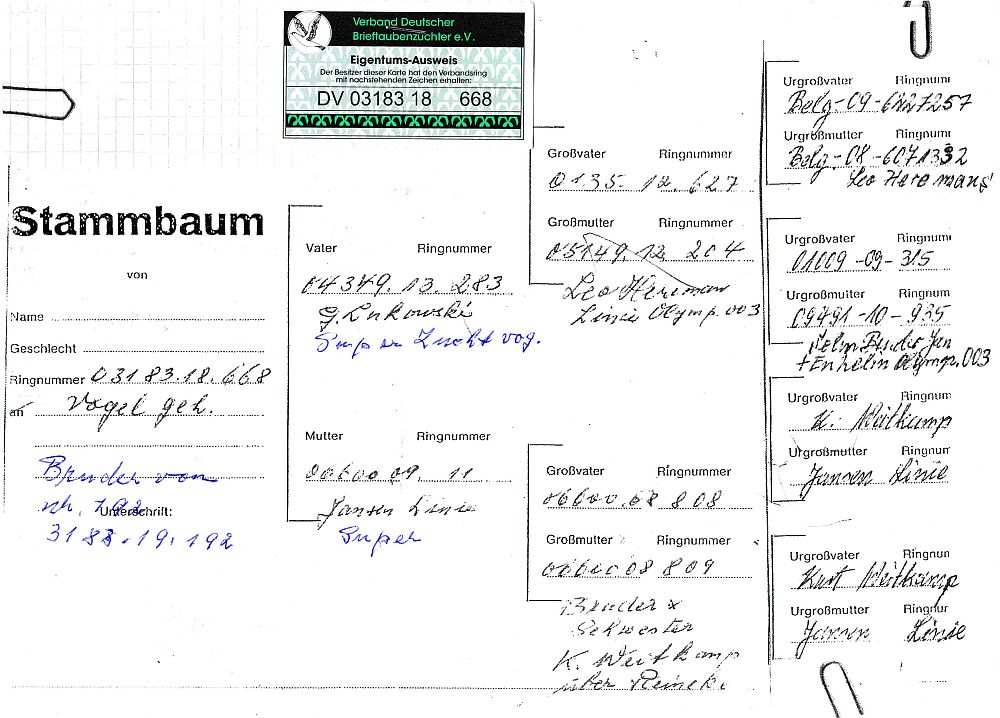 Verband Deutscher
Brieftaubenzüchter e.V.
Eigentums-Ausweis
Der Besitzer dieser Karte hat den Verbandsring
mit nachstehenden Zeichen erhalten:
DV 03183 18 668
Stammbaum
von
Name
Geschlecht
Ringnummer 03183.18.668
an Vogel geh.
Bruder von
nr. 192
Unterschrift:
3183.19.192
Vater Ringnummer
04349.13.283
G. Lukowski
Super Zuchtvog.
Mutter Ringnummer
06600 09. 11
Jansen Linie
Super
Großvater Ringnummer
0135. 12. 627
Großmutter Ringnummer
05149. 12 204
Leo Hereman
Linie Olymp. 003
Großvater Ringnummer
06600.08 808
Großmutter Ringnummer
06600 08 809
Bruder x
Schwester
K. Weitkamp
über Reinek.
Urgroßvater Ringnum
Belg-09-6227257
Urgroßmutter Ringnum
Belg-08-6071332
Leo Heremans
Urgroßvater Ringnum
01009-09-315
Urgroßmutter Ringnum
09491-10-935
+ Enkelin Olymp. 003
Urgroßvater Ringnum
K. Weitkamp
Urgroßmutter Ringnum
Jansen Linie
Urgroßvater Ringnun
Kurt Weitkamp
Urgroßmutter Ringnur
Jansen Linie